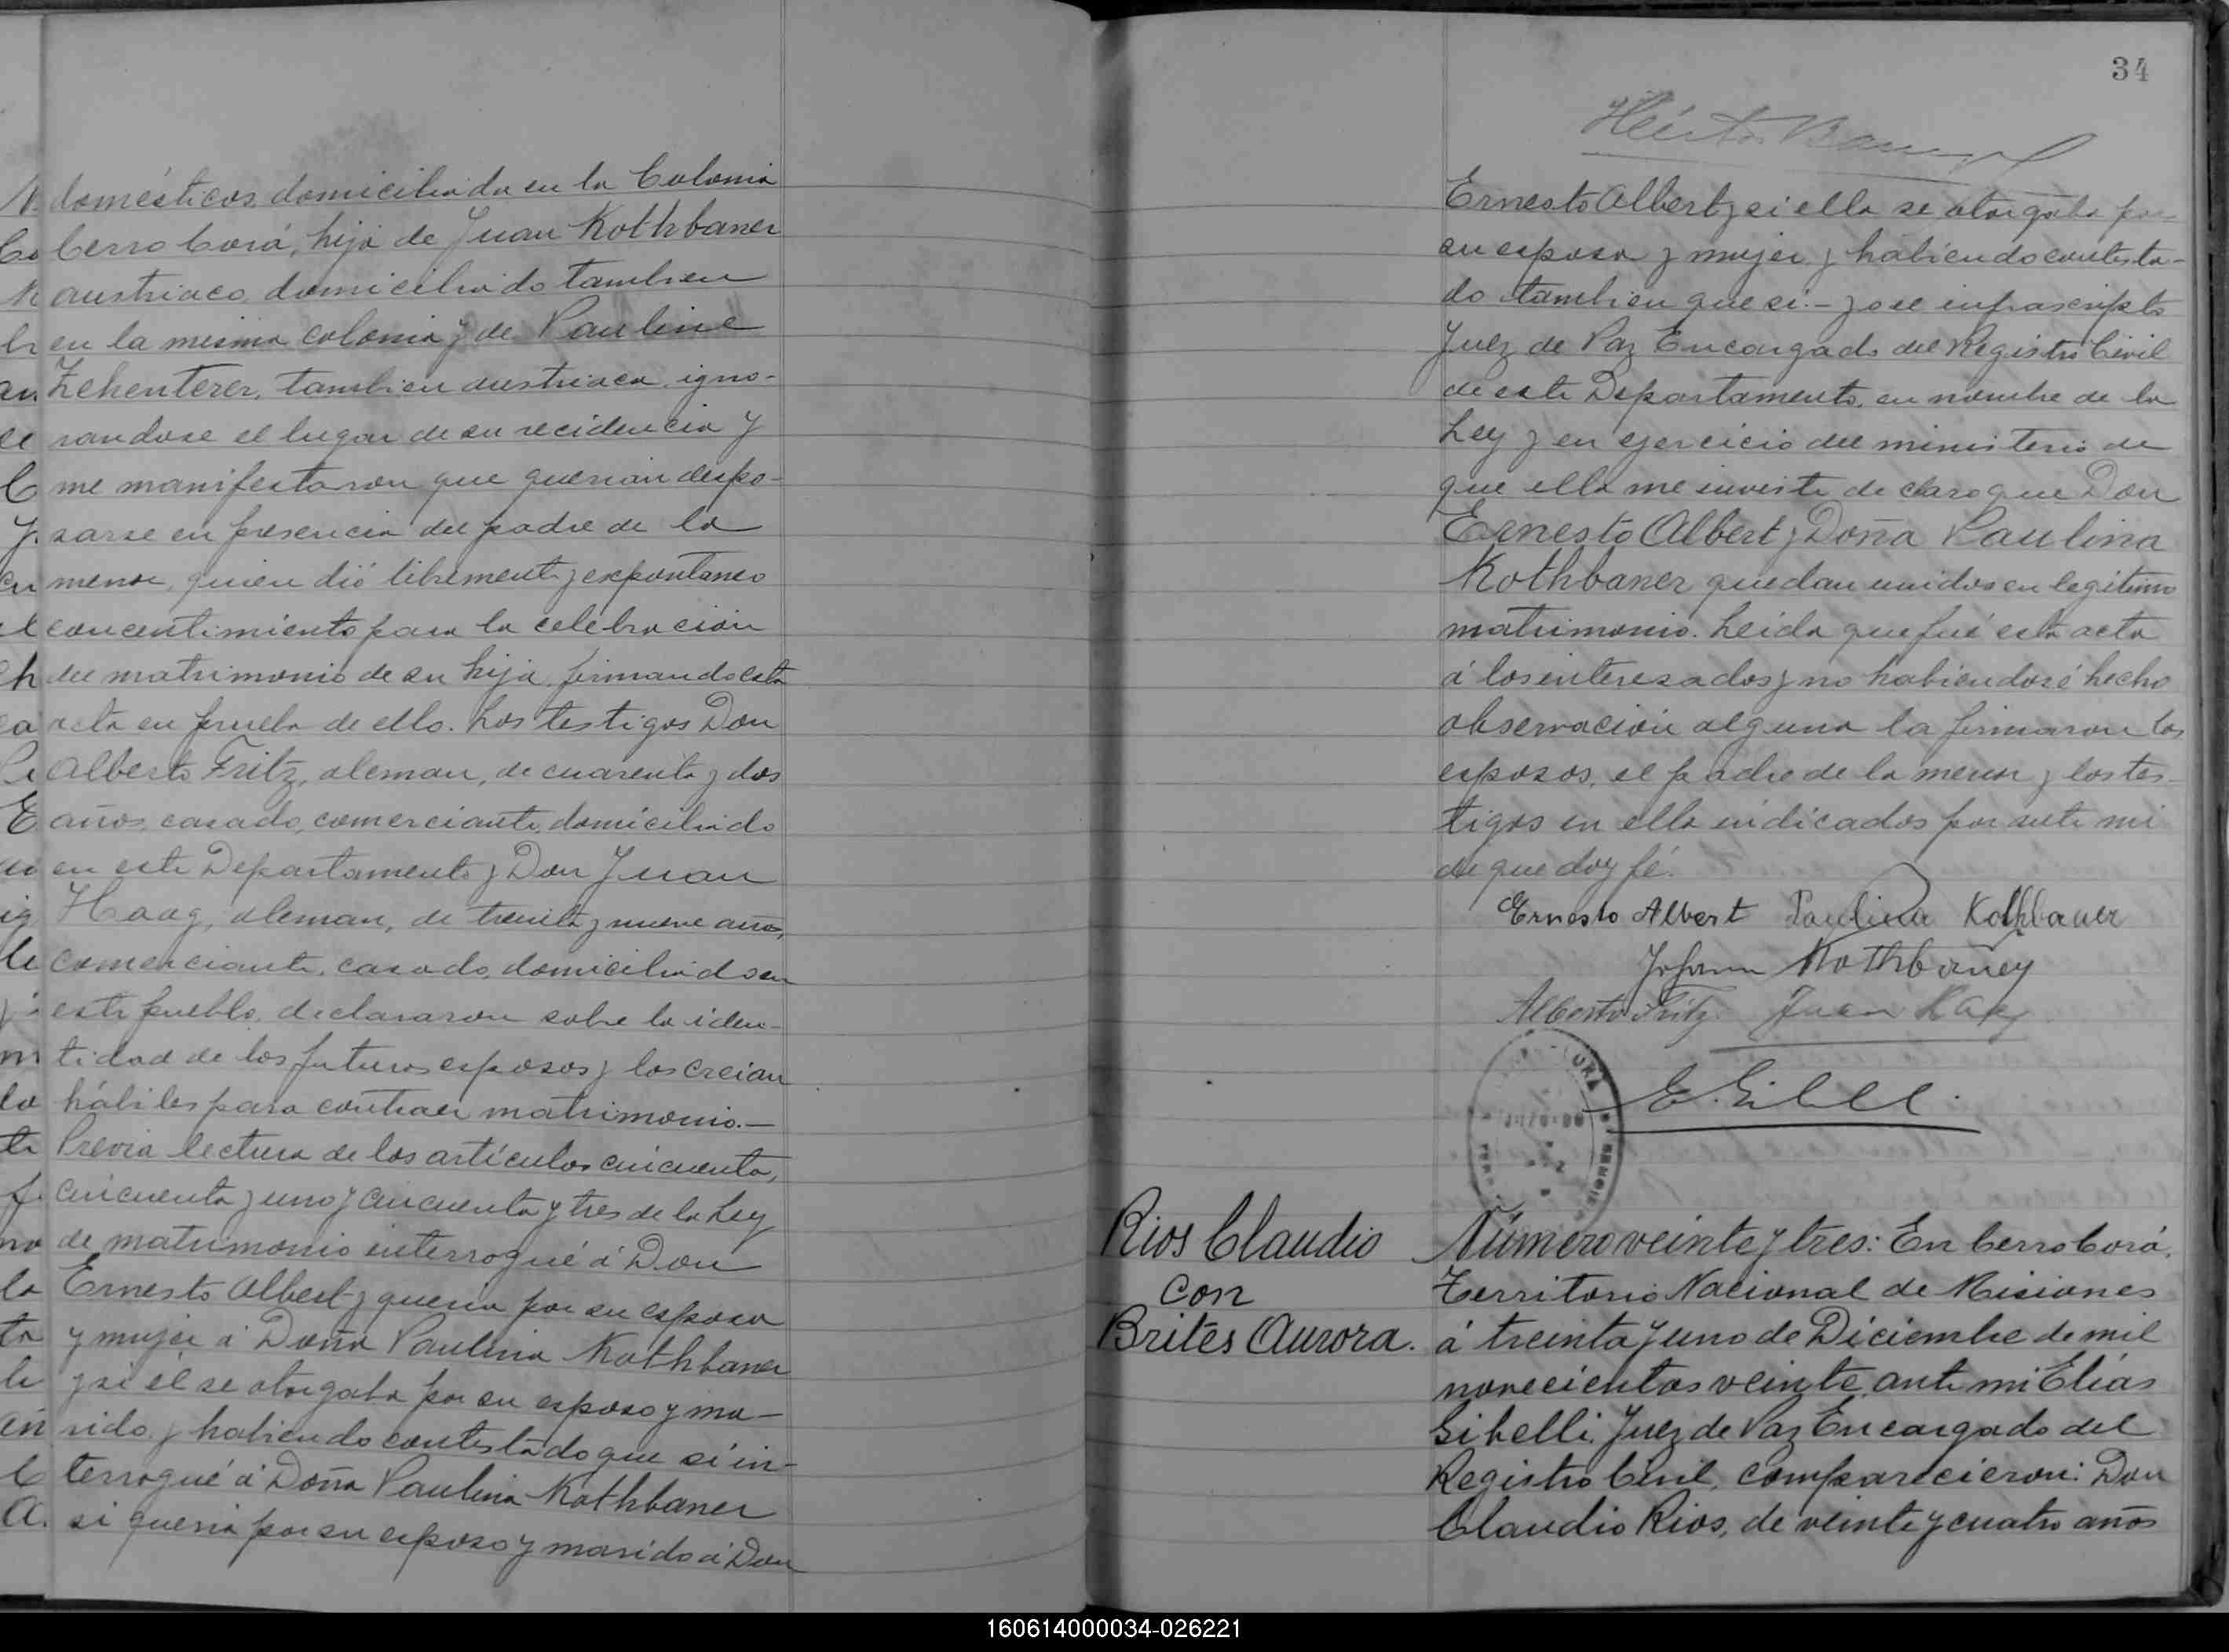 domésticos, domiciliada en la Colonia
Cerro Corá, hija de Juan Kothbaner
austriaco, domiciliado tambien
en la misma colonia y de Pauline
Zehenterer, tambien austriaca, igno-
randose el lugar de su recidencia y
me manifestaron que querian despo-
sarse en presencia del padre de la
menor, quien dió libremente y expontaneo
concentimiento para la celebración
del matrimonio de su hija, firmando esta
acta en prueba de ello. Los testigos Don
Alberto Fritz, aleman, de cuarenta y dos
años, casado, comerciante, domiciliado
en este Departamento y Don Juan
Haag, aleman, de treinta y nueve años,
comerciante, casado, domiciliado en
este pueblo, declararon sobre la iden-
tidad de los futuros esposos y los creian
hábiles para contraer matrimonio.—
Previa lectura de los artículos cincuenta,
cincuenta y uno y cincuenta y tres de la Ley
de matrimonio interrogué á Don
Ernesto Albert y queria por su esposa
y mujer á Doña Paulina Kothbaner
y si él se otorgaba por su esposo y ma-
rido, y habiendo contestado que sí in-
terrogué á Doña Paulina Kothbaner
si queria por su esposo y marido á Don
34
Ernesto Albert y si ella se otorgaba por
su esposa y mujer y habiendo contesta-
do tambien que si.- yo el infrascripto
Juez de Paz Encargado del Registro Civil
de este Departamento, en nombre de la
Ley y en ejercicio del ministerio de
que ella me inviste declaro que Don
Ernesto Albert y Doña Paulina
Kothbaner quedan unidos en legítimo
matrimonio. Leida que fué esta acta
á los interesados y no habiendose hecho
observación alguna la firmaron los
esposos, el padre de la menor y los tes-
tigos en ella indicados por ante mi
de que doy fé.
Ernesto Albert Paulina Kothbauer
Johann Kothbauer
Alberto Fritz Juan Haag
E. Gibelli
Rios Claudio
con
Brites Aurora.
Número veinte y tres: En Cerro Corá,
Territorio Nacional de Misiones
á treinta y uno de Diciembre de mil
novecientos veinte, ante mi Elías
Gibelli, Juez de Paz Encargado del
Registro Civil, comparecieron: Don
Claudio Rios, de veinte y cuatro años
160614000034-026221